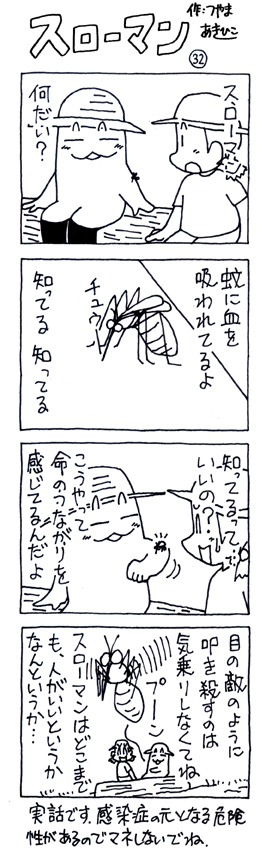 スローマン
作:つやま
あきひこ
32
スローマン
何だい?
蚊に血を
吸われてるよ
チュウ
知ってる 知ってる
知ってるって…
いいの?
こうやって
命のつながりを
感じてるんだよ
目の敵のように
叩き殺すのは
気乗りしなくてね
プーン
スローマンはどこまで
も、人がいいというか
なんというか…
実話です。感染症の元となる危険
性があるのでマネしないでね。